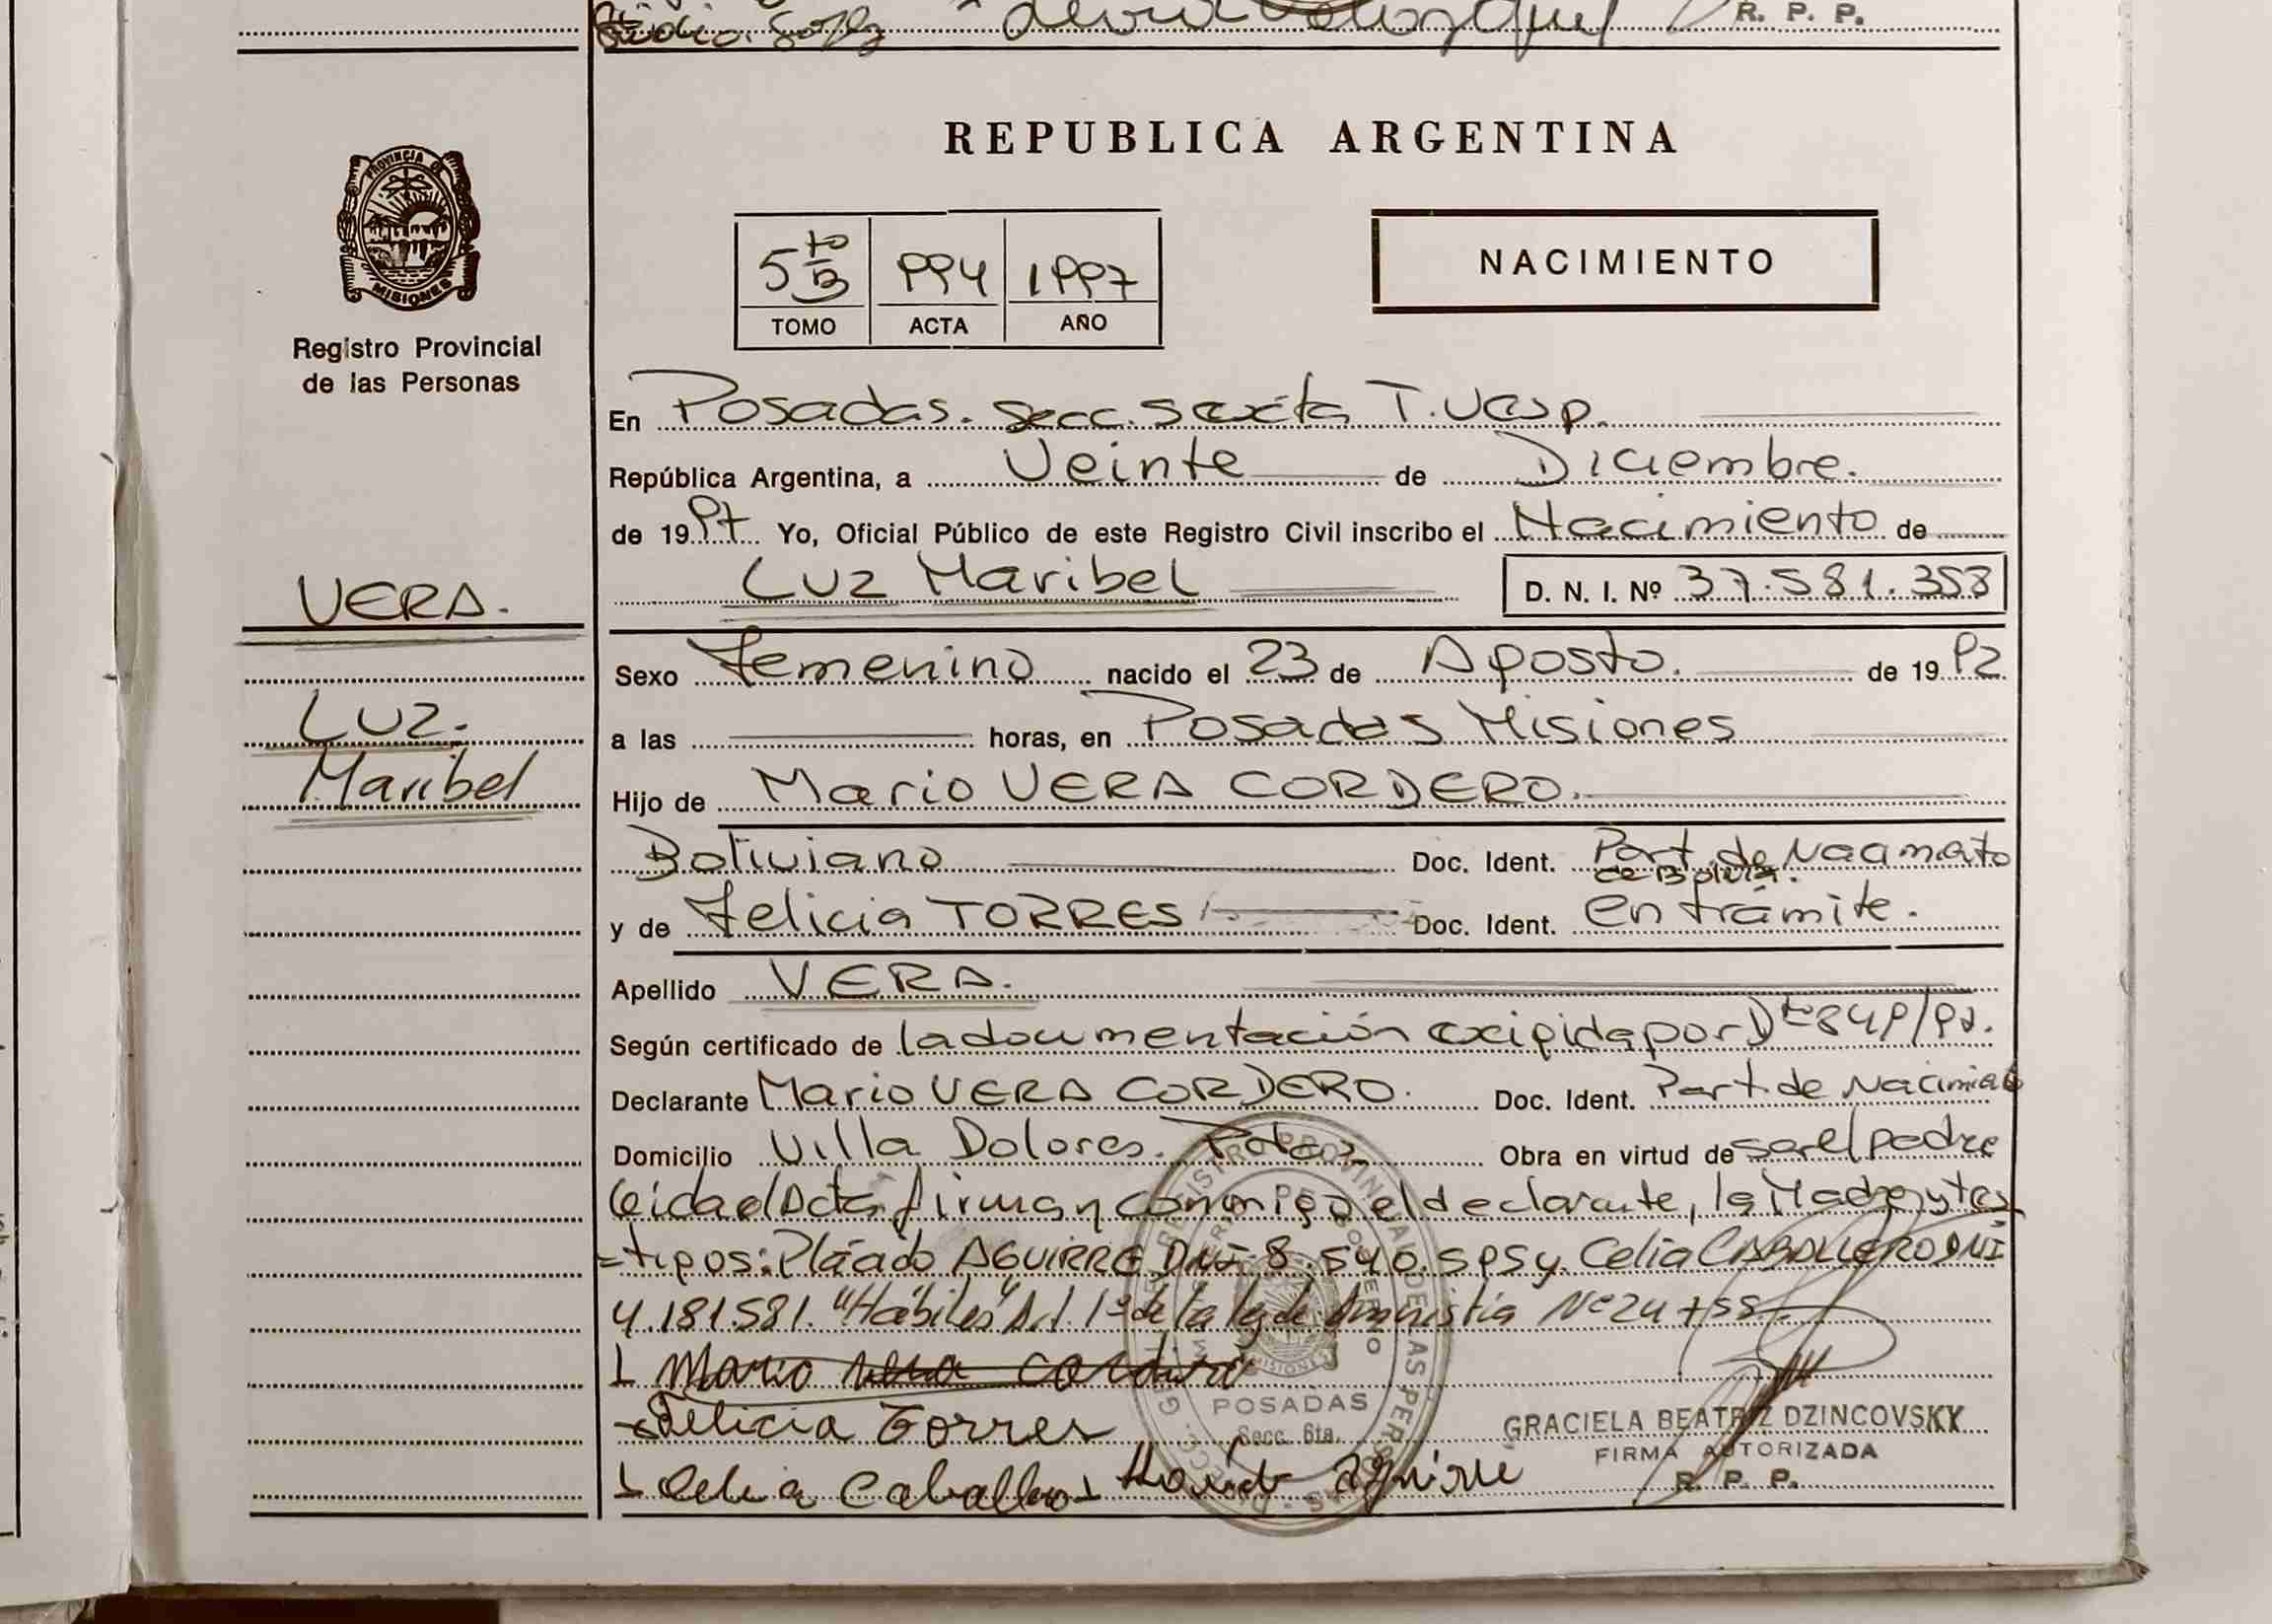 R. P. P.
REPUBLICA ARGENTINA
PROVINCIA DE
MISIONES
Registro Provincial
de las Personas
5to B 994 1997
TOMO ACTA AÑO
NACIMIENTO
En Posadas. Secc. Sexta T. Vesp.
República Argentina, a Veinte de Diciembre.
de 1997 Yo, Oficial Público de este Registro Civil inscribo el Nacimiento de
Luz Maribel D. N. I. Nº 37.581.353
VERA.
Sexo Femenino nacido el 23 de Agosto. de 1992
Luz.
a las horas, en Posadas Misiones
Maribel
Hijo de Mario VERA CORDERO.
Boliviano Doc. Ident. Part. de Nacimato
de Bolivia.
y de Felicia TORRES Doc. Ident. en trámite.
Apellido VERA.
Según certificado de la documentación exigida por Dto 849/97.
Declarante Mario VERA CORDERO. Doc. Ident. Part. de Nacimiato
Domicilio Villa Dolores. Pdas. Obra en virtud de ser el padre
Leida el Acta firman conmigo el declarante, la Madre y tes
=tigos: Plácido AGUIRRE DNI 8.540.595 y Celia CABALLERO DNI
4.181.581. "Hábiles" Art. 1º de la ley de Amnistía Nº 24755
Mario Vera Cordero
Felicia Torres
POSADAS
Secc. 6ta.
GRACIELA BEATRIZ DZINCOVSKY
FIRMA AUTORIZADA
R. P. P.
Celia Caballero Aguirre